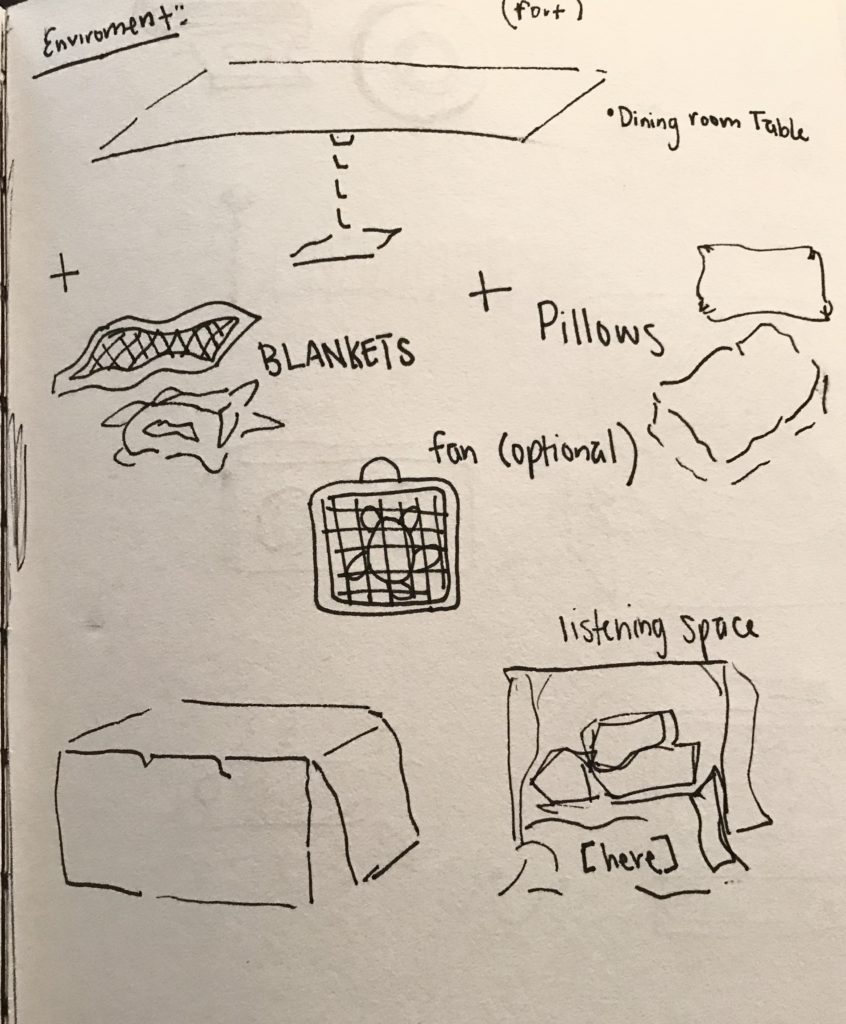 Enviroment:
(Fort)
•Dining room Table
+
+
BLANKETS
Pillows
fan (optional)
listening space
[here]